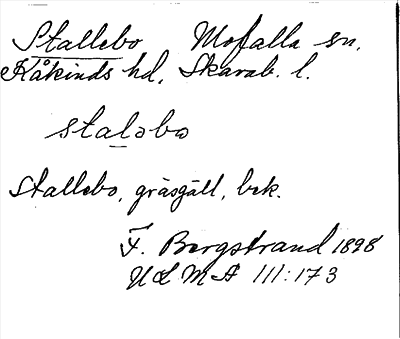 Stallebo Mofalla sn.
Kåkinds hd, Skarab. l.
staləbω
Stallebo, gräsgäll, bek.
F. Bergstrand 1898
ULMA 111:173